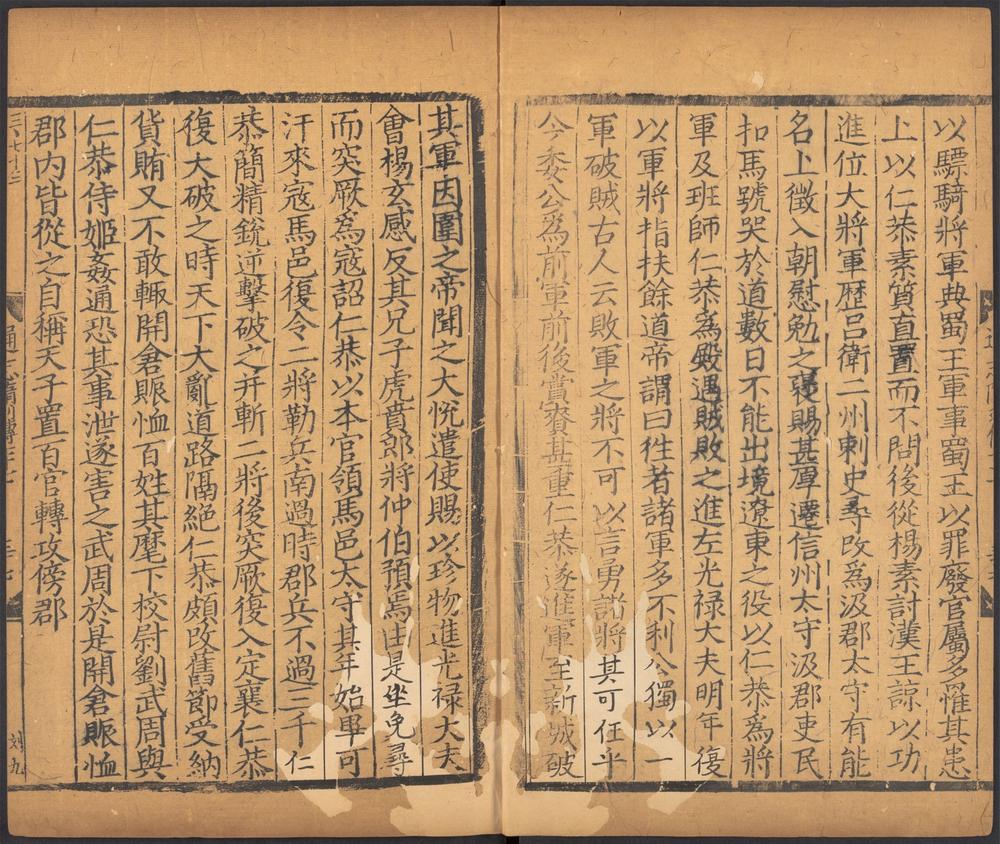 以驃騎將軍典蜀王軍事蜀王以罪廢官屬多罹其患
上以仁恭素質直置而不問後從楊素討漢王諒以功
進位大將軍歷呂衛二州刺史尋改爲汲郡太守有能
名上徵入朝慰勉之褒賜甚厚遷信州太守汲郡吏民
扣馬號哭於道數日不能出境遼東之役以仁恭爲將
軍及班師仁恭爲殿遇賊敗之進左光禄大夫明年復
以軍將指扶餘道帝謂曰往者諸軍多不利公獨以一
軍破賊古人云敗軍之將不可以言勇諸將其可任乎
今委公爲前軍前後賞賚甚重仁恭遂進軍至新城破
其軍因圍之帝聞之大悅遣使賜以珍物進光禄大夫
會楊玄感反其兄子虎賁郎將仲伯預焉由是坐免尋
而突厥爲寇詔仁恭以本官領馬邑太守其年始畢可
汗來寇馬邑復令二將勒兵南過時郡兵不過三千仁
恭簡精銳逆擊破之并斬二將後突厥復入定襄仁恭
復大破之時天下大亂道路隔絕仁恭頗改舊節受納
貨賄又不敢輙開倉賑恤百姓其麾下校尉劉武周與
仁恭侍姬姦通恐其事泄遂害之武周於是開倉賑恤
郡内皆從之自稱天子置百官轉攻傍郡